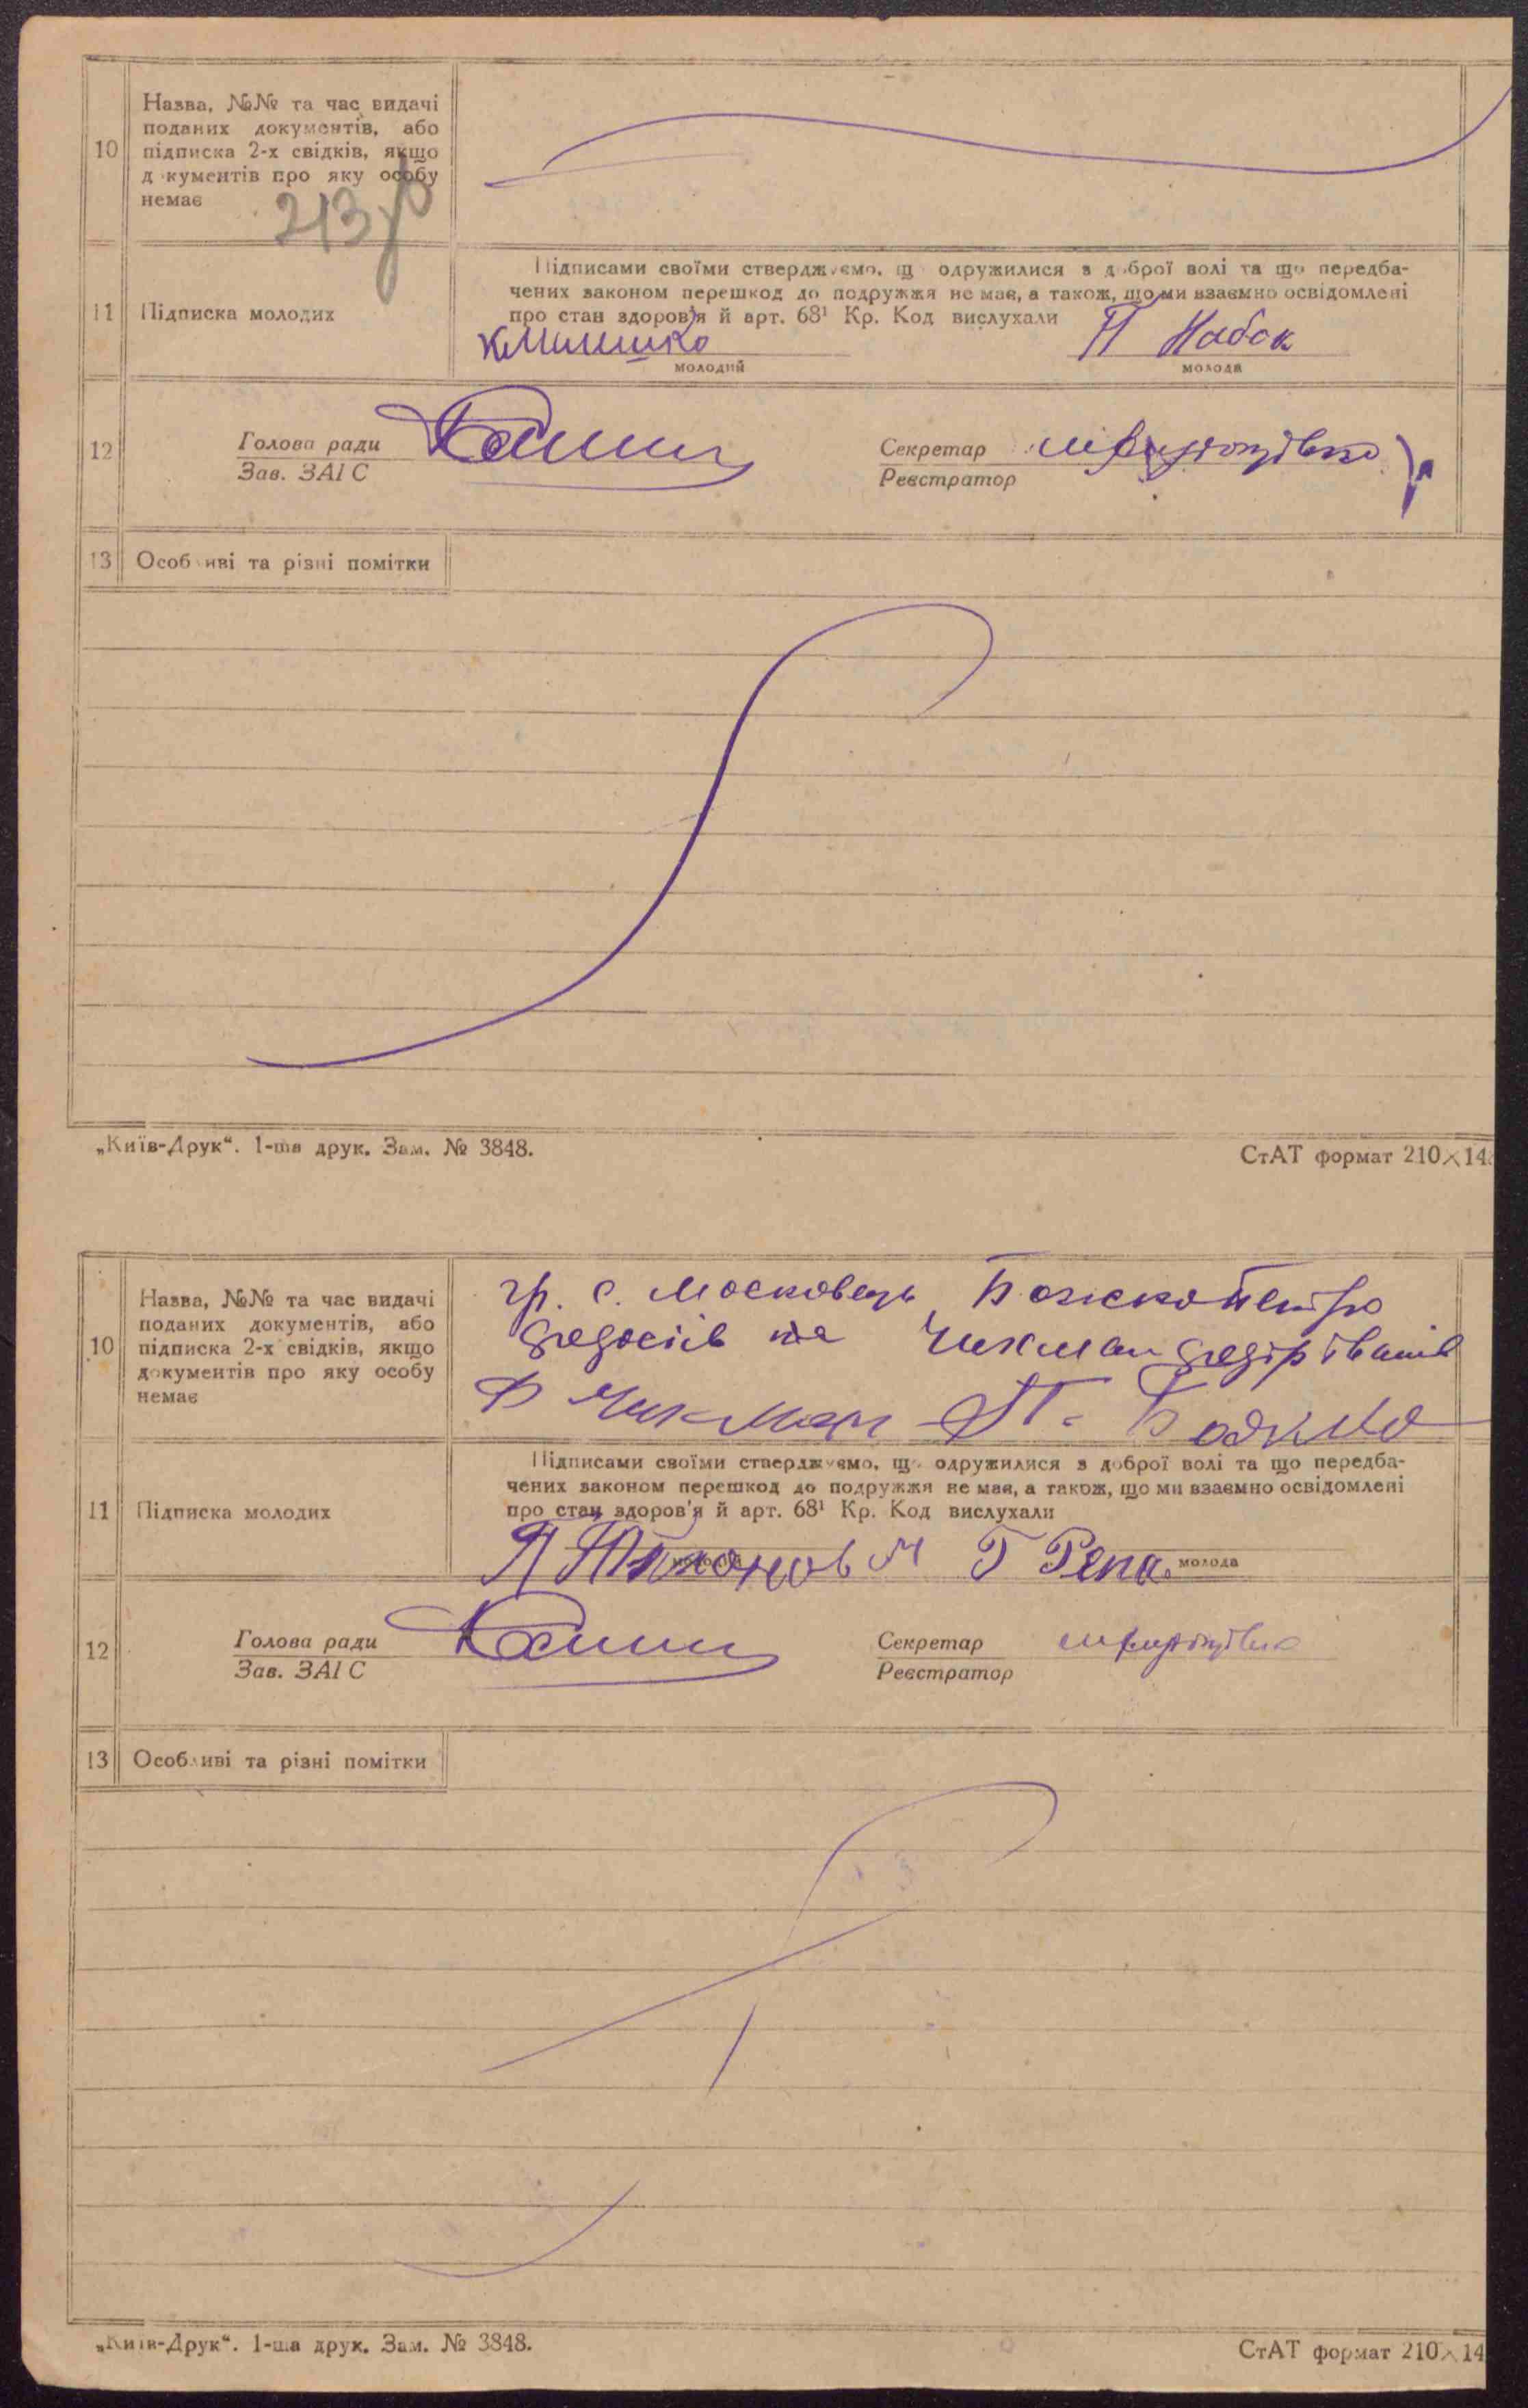 10
Назва, №№ та час видачі
поданих документів, або
підписка 2-х свідків, якщо
д кументів про яку особу
немає
213
11
Підписка молодих
Підписами своїми стверджуємо, щ одружилися з доброї волі та що передба-
чених законом перешкод до подружжя не має, а також, що ми взаємно освідомлені
про стан здоров'я й арт. 68¹ Кр. Код вислухали
П Набок
молодий
молода
12
Голова ради
Зав. ЗАГС
Секретар
Реєстратор
13
Особ иві та різні помітки
„Київ-Друк“. 1-ша друк. Зам. № 3848.
СтАТ формат 210×14
10
Назва, №№ та час видачі
поданих документів, або
підписка 2-х свідків, якщо
документів про яку особу
немає
гр. с. Московець Божко Петро
на Чикман
Чикман П. Божко
11
Підписка молодих
Підписами своїми стверджуємо, що одружилися з доброї волі та що передба-
чених законом перешкод до подружжя не має, а також, що ми взаємно освідомлені
про стан здоров'я й арт. 68¹ Кр. Код вислухали
Г Репа
молода
12
Голова ради
Зав. ЗАГС
Секретар
Реєстратор
13
Особливі та різні помітки
„Київ-Друк“. 1-ша друк. Зам. № 3848.
СтАТ формат 210×14